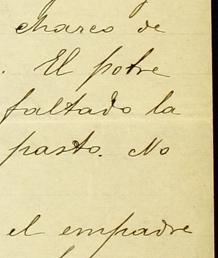 charco de
. El pobre
faltado la
pasto. No
el empadre